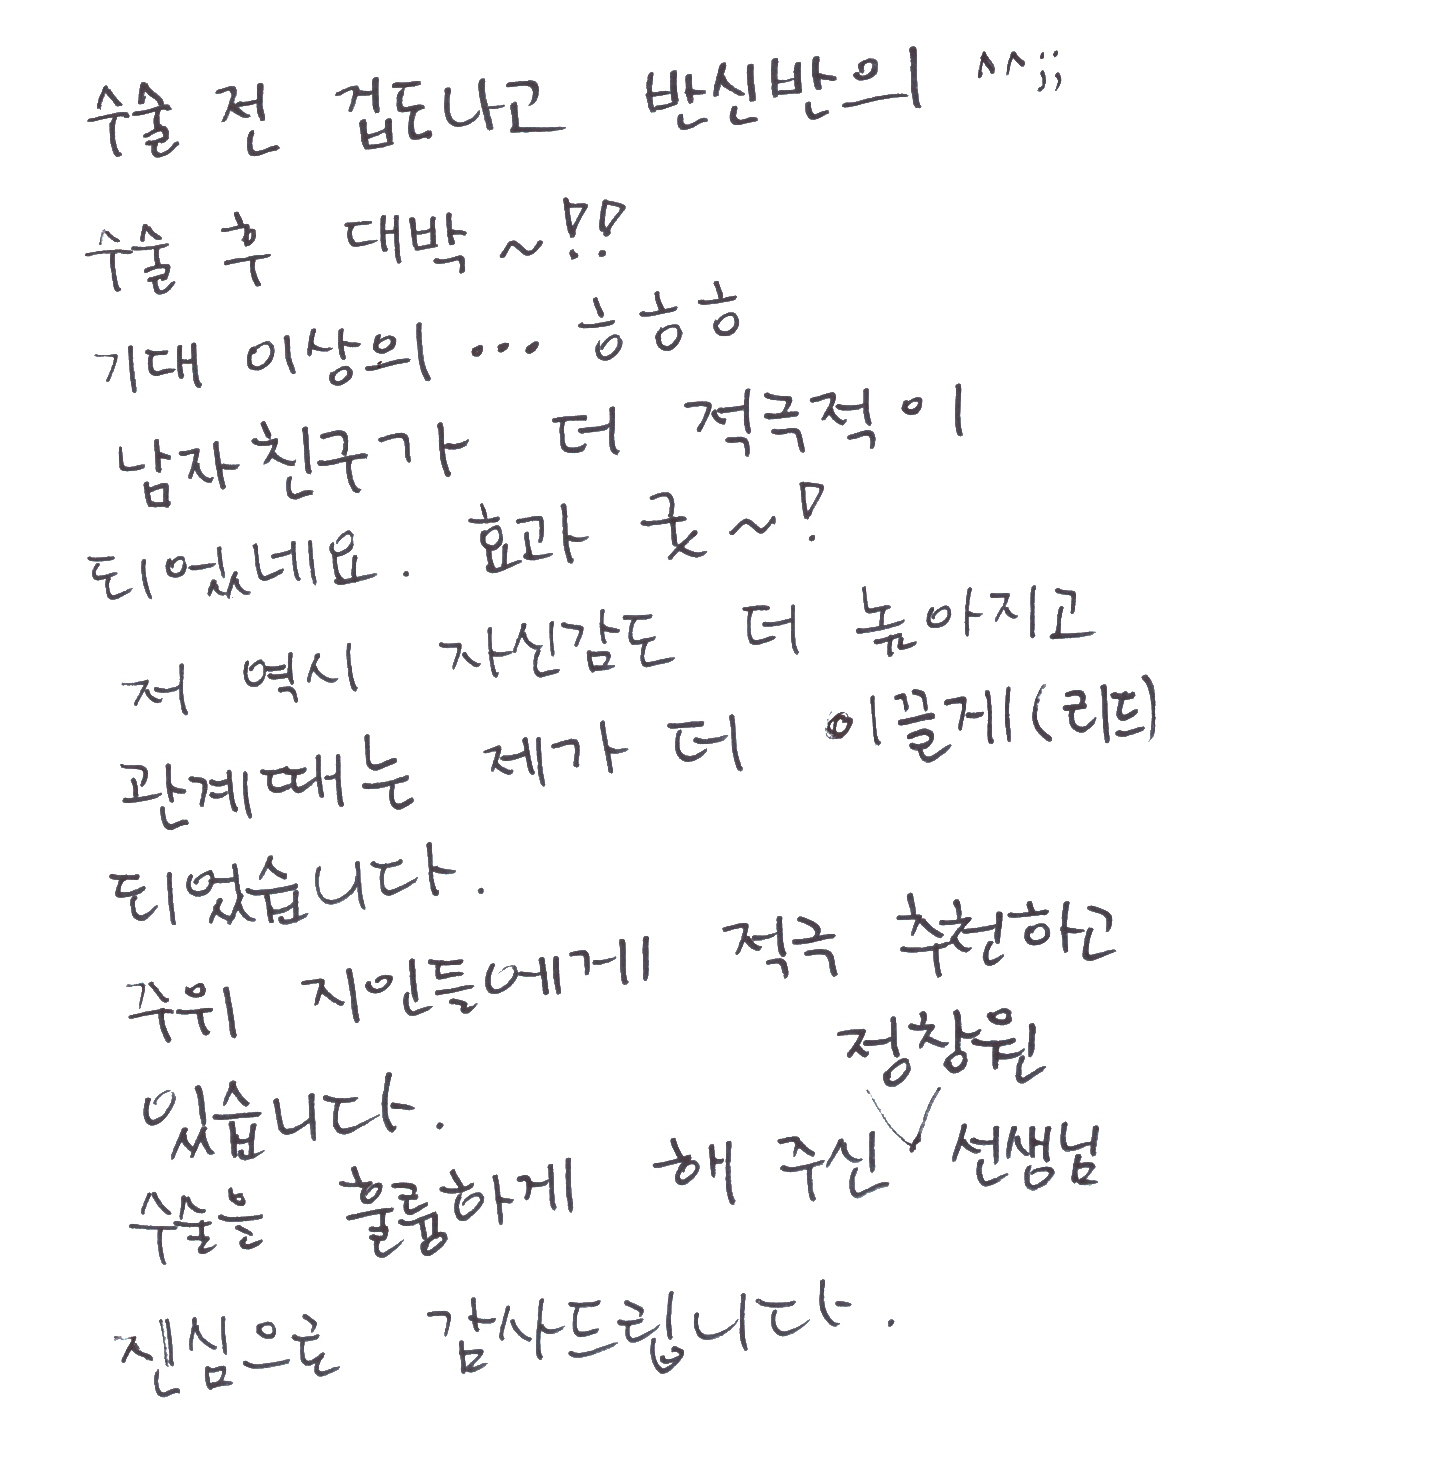 수술 전 겁도나고 반신반의 ^^;;
수술 후 대박~!!
기대 이상의 ... ㅎㅎㅎ
남자친구가 더 적극적이
되었네요. 효과 굿~!
저 역시 자신감도 더 높아지고
관계때는 제가 더 이끌게(리드)
되었습니다.
주위 지인들에게 적극 추천하고
있습니다.
정창원
수술을 훌륭하게 해 주신 선생님
진심으로 감사드립니다.